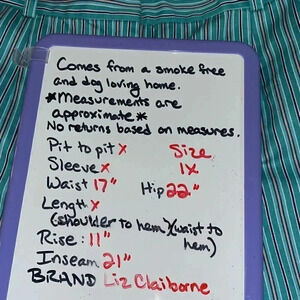 Comes from a smoke free
and dog loving home.
*Measurements are
approximate*
No returns based on measures.
Pit to pit x Size
Sleeve x 1X
Waist 17" Hip 22"
Length x
(shoulder to hem)(waist to
hem)
Rise: 11"
Inseam 21"
BRAND Liz Claiborne